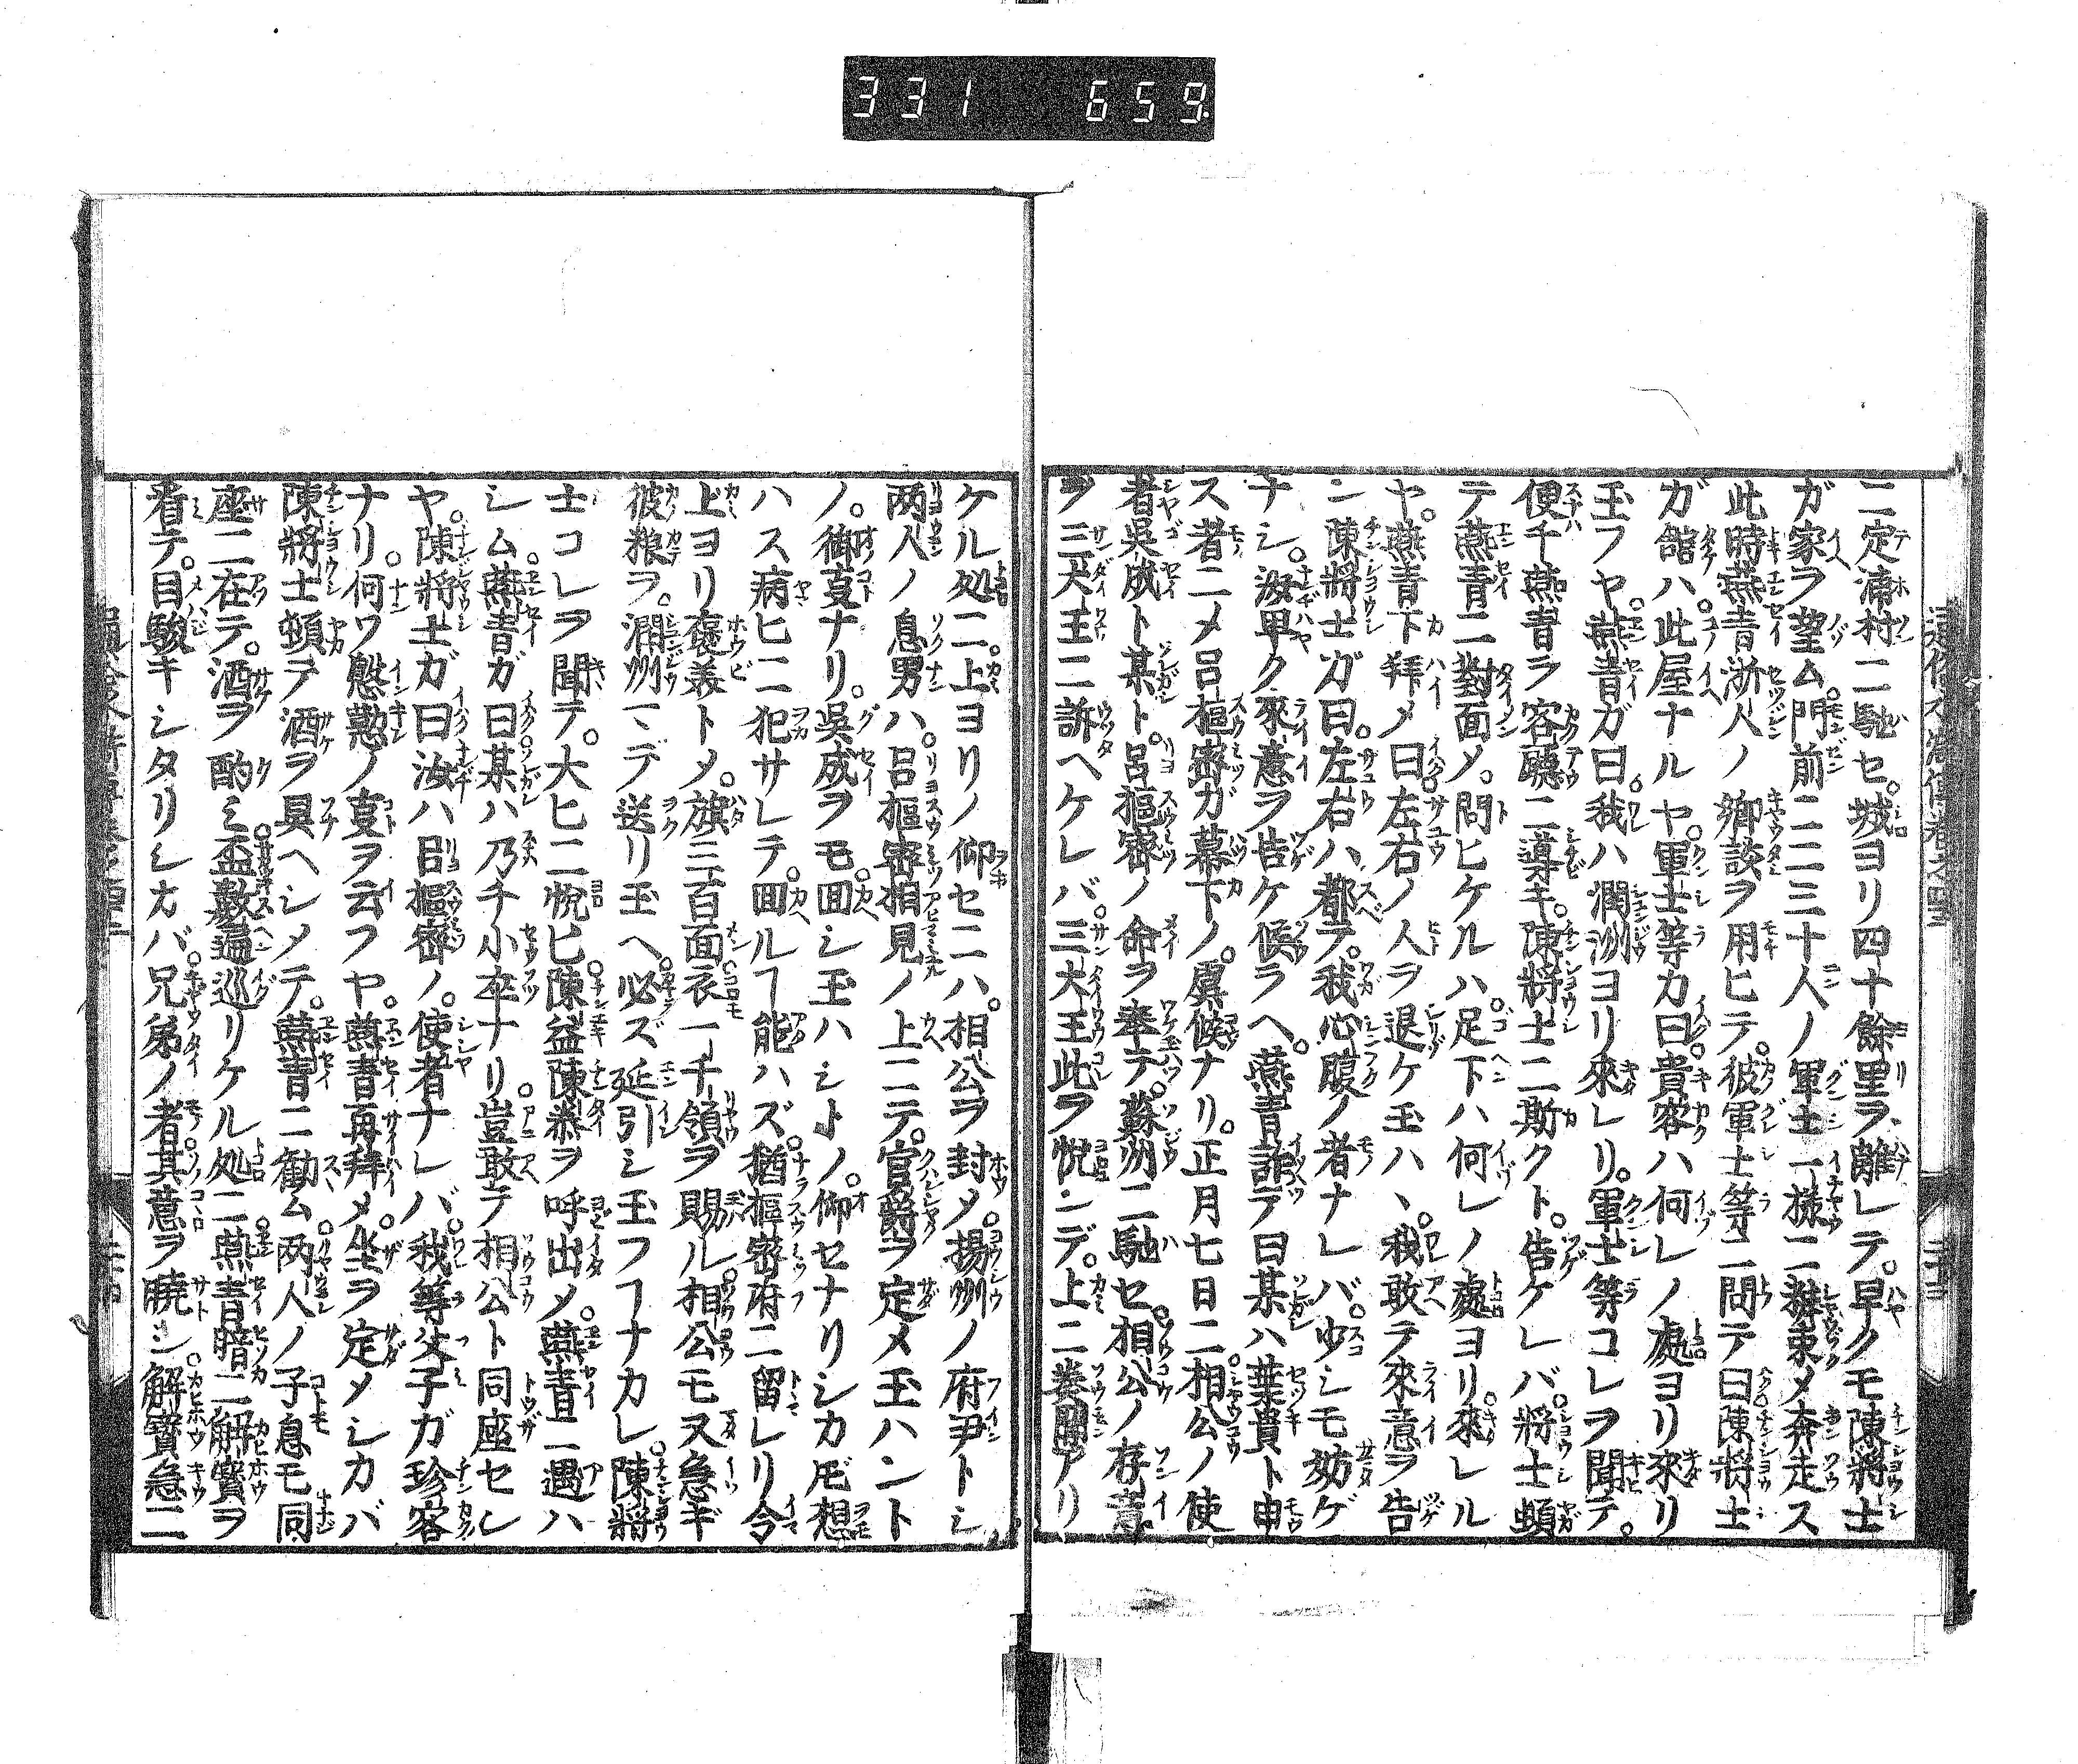 331 659
ニ定浦村ニ馳セ。城ヨリ四十餘里ヲ離レテ。早クモ陳將士
ガ家ヲ望ム門前ニ二三十人ノ軍士一樣ニ擗束メ奔走ス
此時燕青浙人ノ鄉談ヲ用ヒテ。彼軍士等ニ問テ曰陳將士
ガ舘ハ此屋ナルヤ。軍士等カ曰貴客ハ何レノ處ヨリ來リ
玉フヤ。燕青ガ曰。我ハ潤洲ヨリ來レリ。軍士等コレヲ聞テ。
便千燕青ヲ客廳ニ導キ。陳將士ニ斯クト。告ケレバ。將士頓
テ燕青ニ對面メ。問ヒケルハ足下ハ何レノ處ヨリ來レル
ヤ。燕青下拜メ曰。左右ノ人ヲ退ケ玉ハヽ我敢テ來意ヲ告
ン陳將士ガ曰。左右ハ都テ。我心腹ノ者ナレバ。少シモ妨ゲ
ナシ。汝早ク來意ヲ告ケ候ラヘ。燕青詐テ曰某ハ葉貴ト申
ス者ニメ呂樞密ガ幕下ノ。虞候ナリ。正月七日ニ相公ノ使
者吳成ト某ト。呂樞密ノ命ヲ奉テ。蘇州ニ馳セ。相公ノ存意
ヲ三大王ニ訴ヘケレバ。三大王此ヲ悅ンデ。上ニ奏聞アリ
ケル処ニ。上ヨリノ仰セニハ。相公ヲ封メ。揚州ノ府尹トシ
両人ノ息男ハ。呂樞密相見ノ上ニテ。官爵ヲ定メ玉ハント
ノ。御㕝ナリ。吳成ヲモ回シ玉ハシトノ。仰セナリシカ𪜈想
ハス病ヒニ犯サレテ。回ルヿ能ハズ。猶樞密府ニ留レリ今
上ヨリ褒美トメ。旗三百面衣一千領ヲ賜ル相公モ又急ギ
彼粮ヲ。潤州マデ送リ玉ヘ。必ズ延引シ玉フヿナカレ。陳將
士コレヲ聞テ。大ヒニ悅ビ陳益陳泰ヲ呼出メ。燕青ニ遇ハ
シム。燕青ガ曰某ハ乃チ小卒ナリ。豈敢テ相公ト同座セレ
ヤ。陳將士ガ曰汝ハ呂樞密ノ。使者ナレバ。我等父子ガ珍客
ナリ。何ソ慇懃ノ㕝ヲ云フヤ。燕青再拜メ。坐ヲ定メシカバ
陳將士頓テ酒ヲ具ヘシメテ。燕青ニ勧ム。両人ノ子息モ同
座ニ在テ。酒ヲ酌ミ。盃數遍巡リケル処ニ。燕青暗ニ解寶ヲ
看テ。目駿キシタリシカバ。兄弟ノ者。其意ヲ曉シ。解寶急ニ